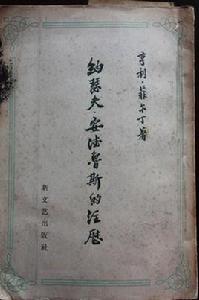 亨利·菲尔丁著
約瑟夫·安德魯斯的经歷
新文艺出版社